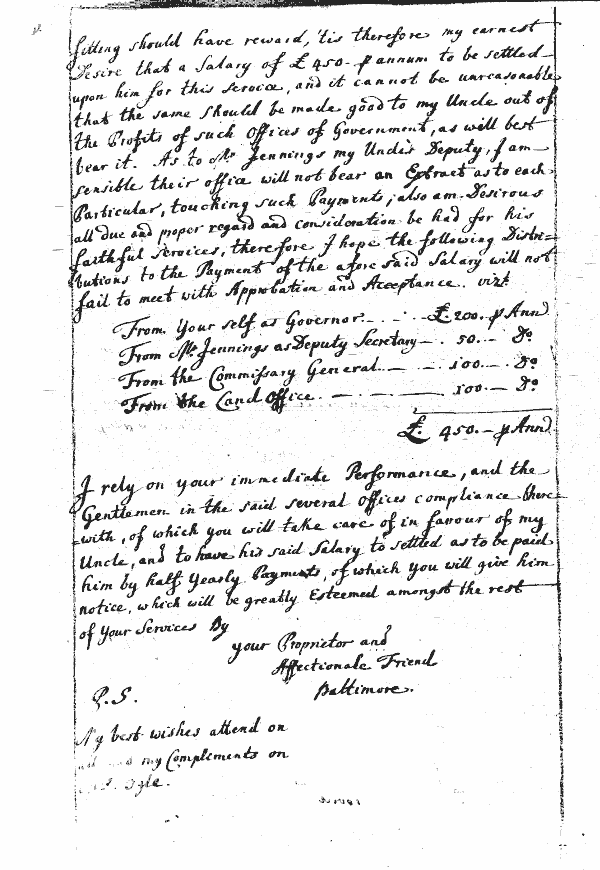 fitting should have reward, 'tis therefore my earnest
Desire that a Salary of £450 - ⅌ annum to be settled
upon him for this service, and it cannot be unreasonable
that the same should be made good to my Uncle out of
the Profits of such Offices of Government, as will best
bear it. As to Mr. Jennings my Under Deputy, I am
sensible their office will not bear an Extract as to each
Particular, touching such Payments, also am Desirous
all due and proper regard and consideration be had for his
faithful services, therefore I hope the following Distri=
butions to the Payment of the afore said Salary will not
fail to meet with Approbation and Acceptance.. vizt.
From Your self as Governor - - - £200. ⅌ Ann
From Mr. Jennings as Deputy Secretary - . 50. - Do
From the Commissary General - - 100. - Do
From the Land Office - - - 100. - Do
£. 450. - ⅌ Ann
I rely on your immediate Performance, and the
Gentlemen in the said several offices compliance there
with, of which you will take care of in favour of my
Uncle, and to have his said Salary to settled as to be paid
him by half Yearly Payments, of which you will give him
notice, which will be greatly Esteemed amongst the rest
of Your Services By
your Proprietor and
Affectionate Friend
Baltimore.
P.S.
My best wishes attend on
my Compliments on
Ogle.